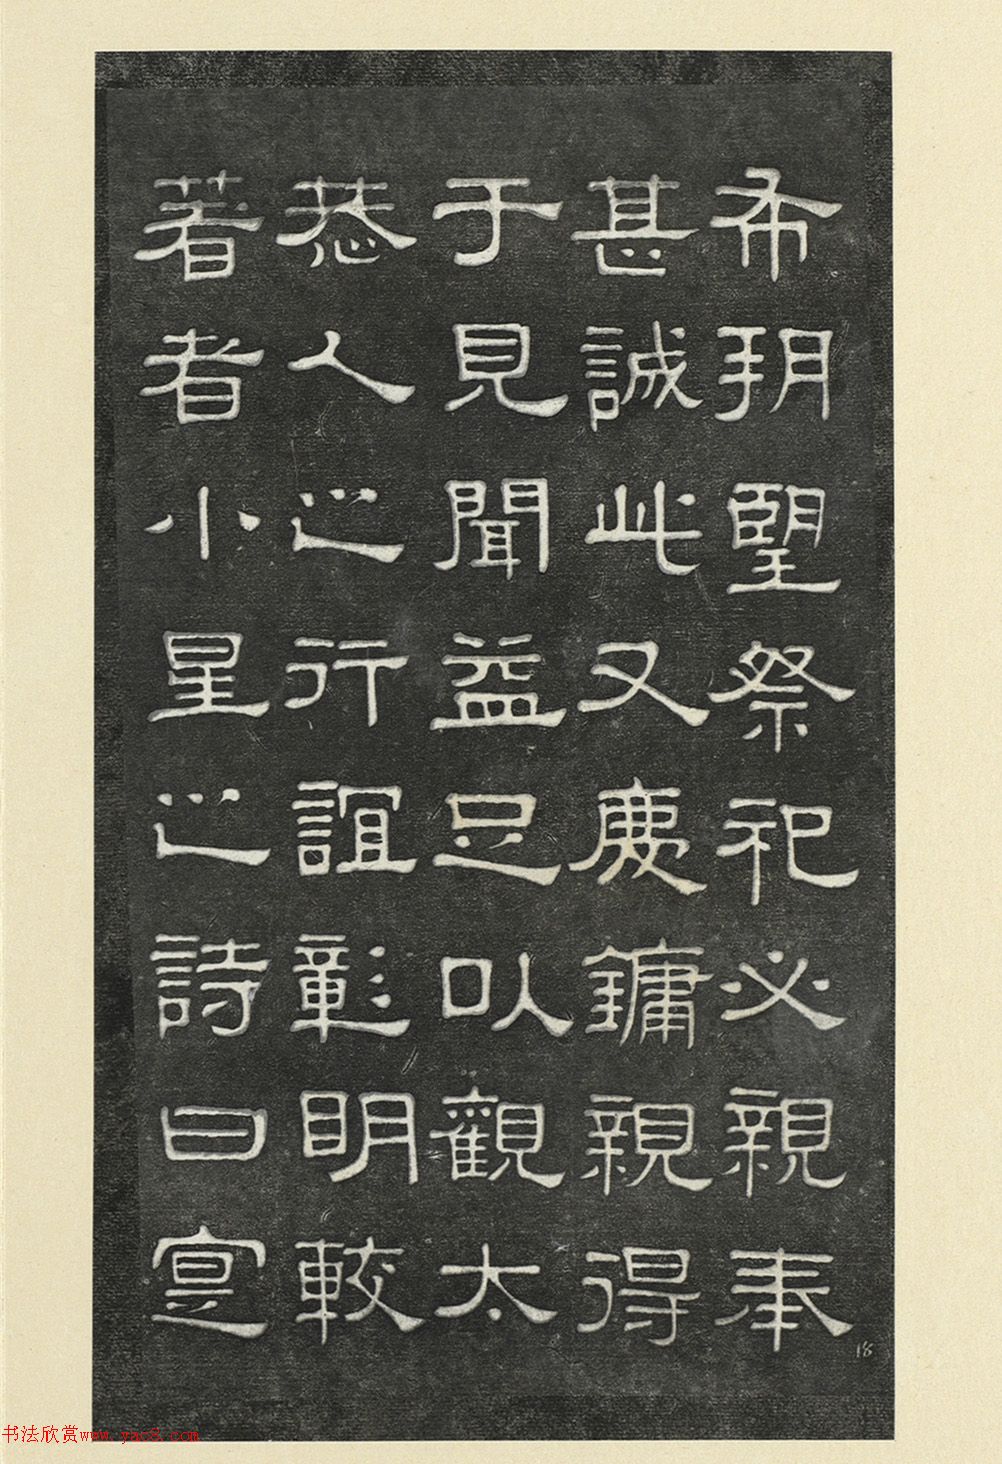 希朔望祭祀必親奉
甚誠此又慶鏞親得
于見聞益足以觀太
恭人之行誼彰明較
著者小星之詩曰寔
18
书法欣赏www.yac8.com